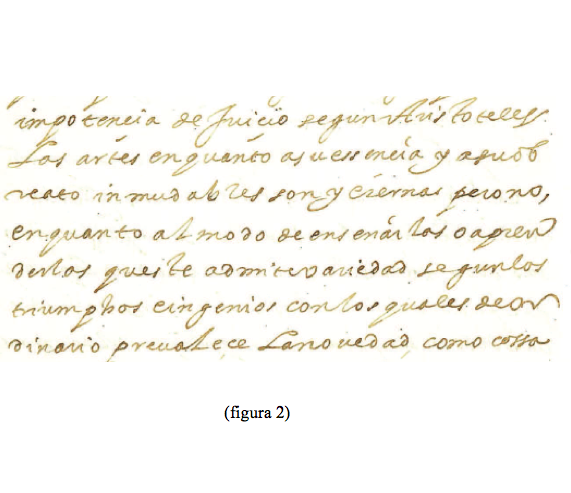 impotencia de Juicio segun Aristoteles.
Las artes enquanto asuessencia y asuob
reato inmudables son y eternas pero no,
enquanto al modo de enseñarlas o apren
derlas queste admite variedad segun los
triumphos eingenios con los quales de or
dinario prevalece La novedad, como cossa
(figura 2)